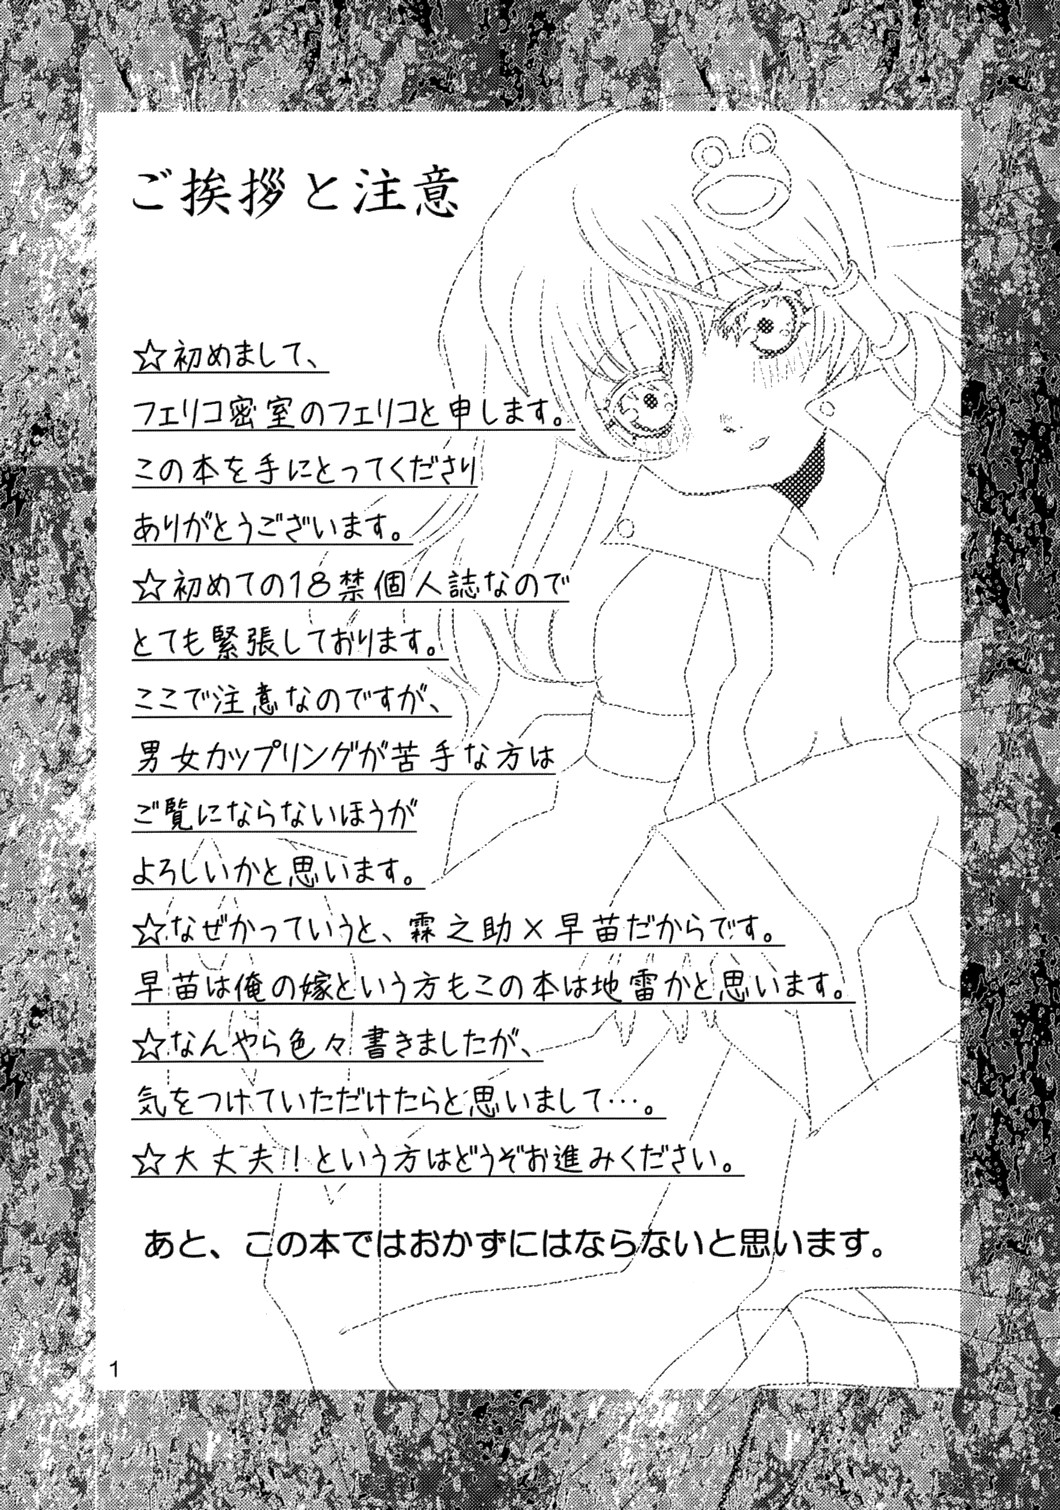 ご挨拶と注意
☆初めまして、
フェリコ密室のフェリコと申します。
この本を手にとってくださり
ありがとうございます。
☆初めての18禁個人誌なので
とても緊張しております。
ここで注意なのですが、
男女カップリングが苦手な方は
ご覧にならないほうが
よろしいかと思います。
☆なぜかっていうと、霖之助×早苗だからです。
早苗は俺の嫁という方もこの本は地雷かと思います。
☆なんやら色々書きましたが、
気をつけていただけたらと思いまして…。
☆大丈夫!という方はどうぞお進みください。
あと、この本ではおかずにはならないと思います。
1